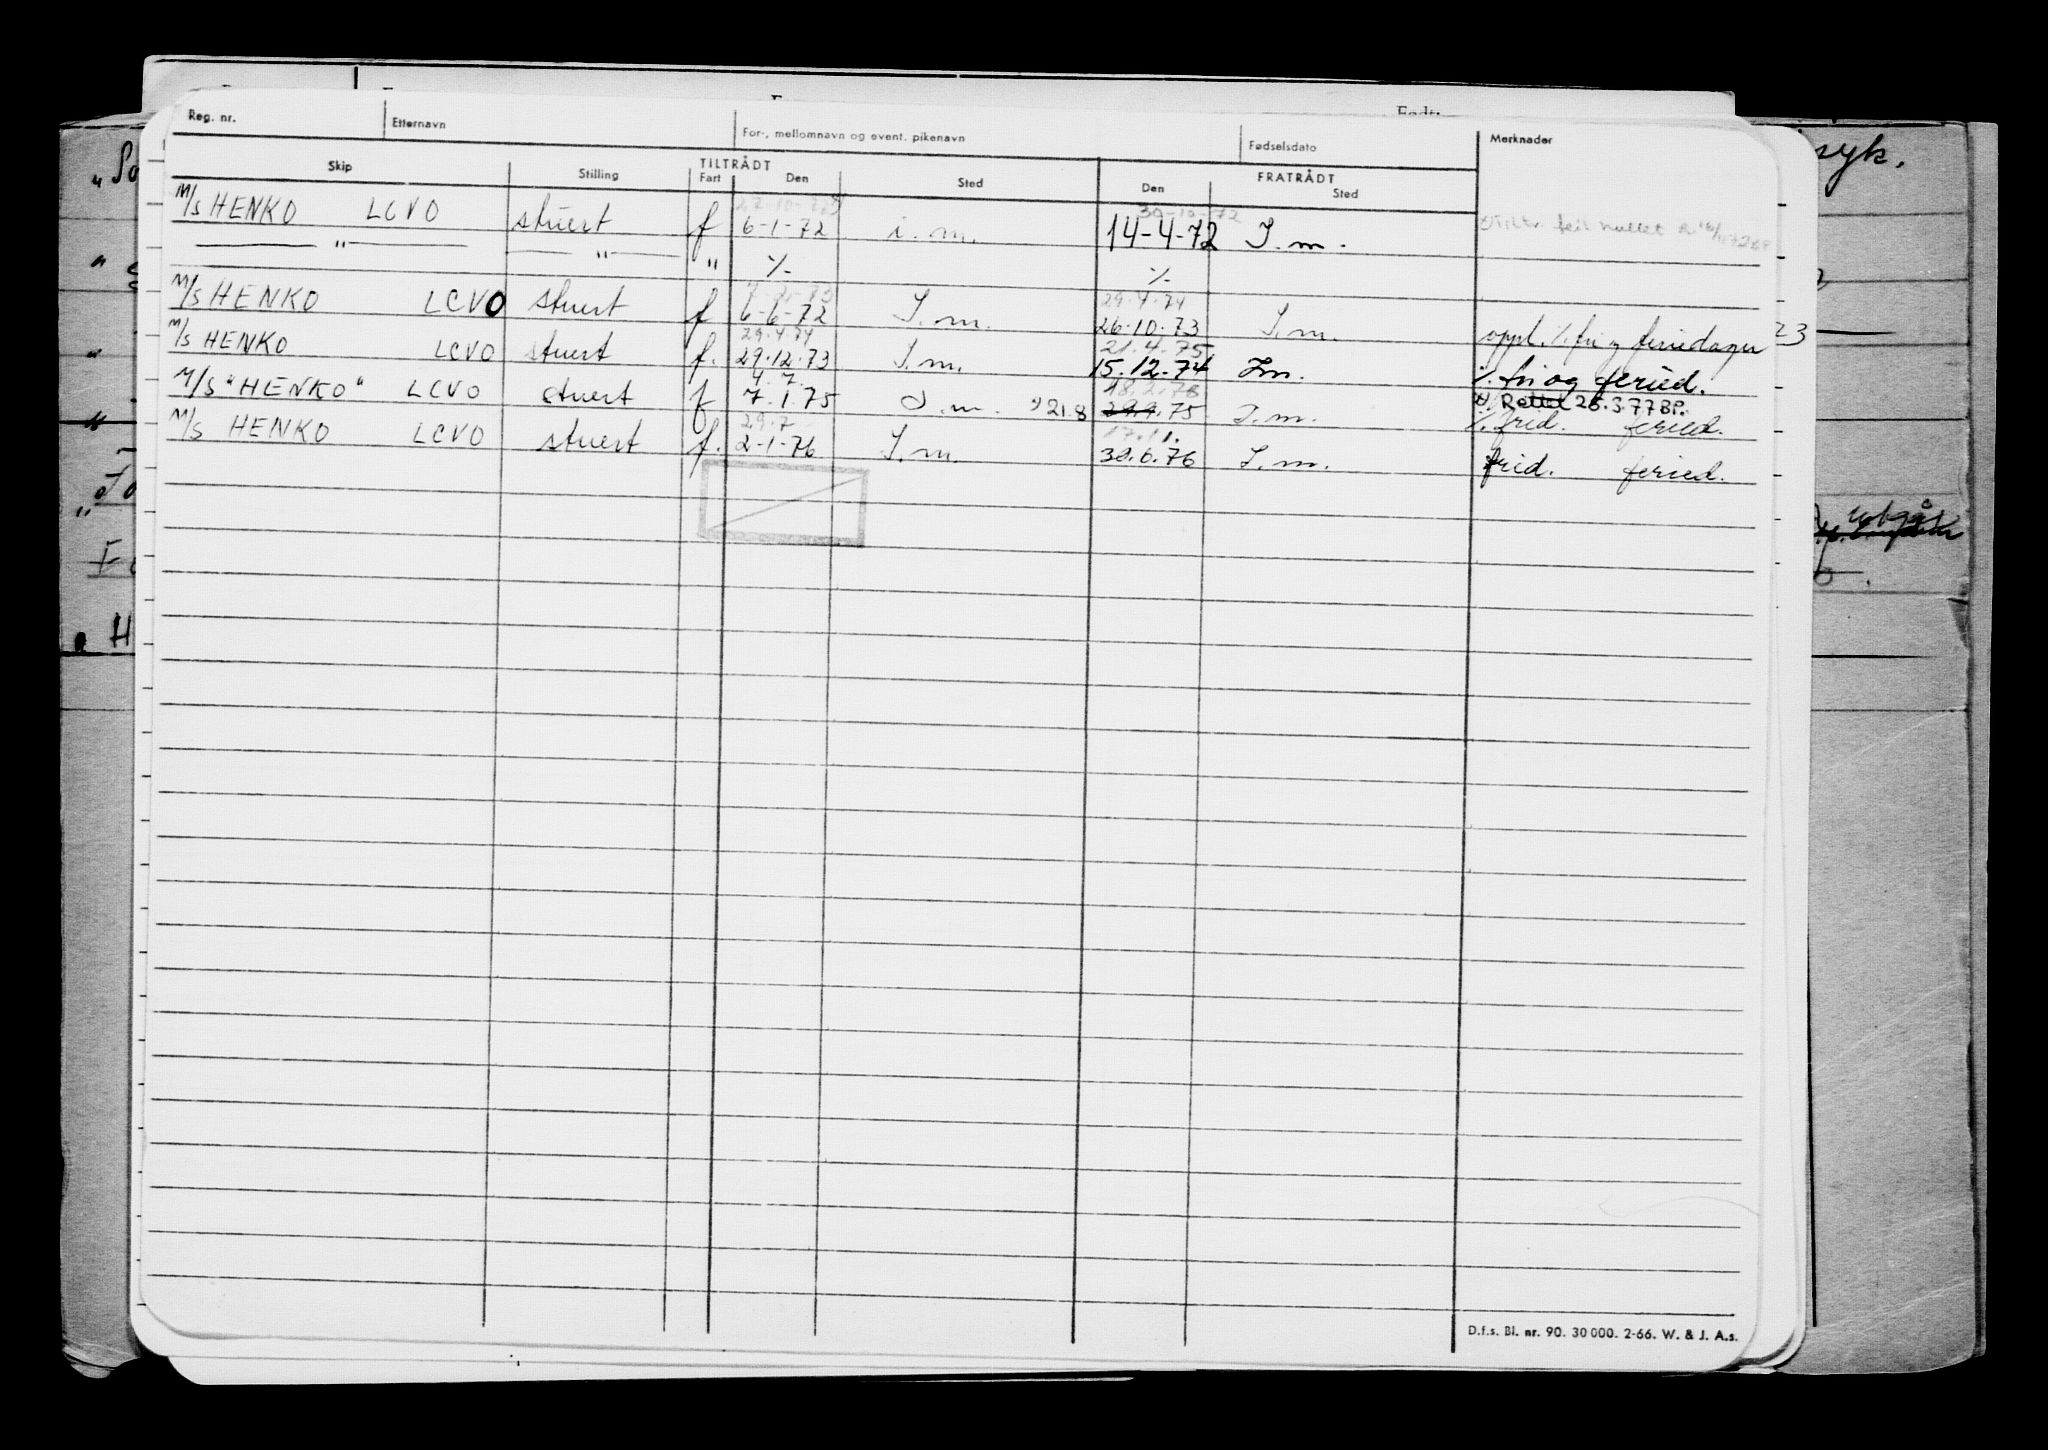 Reg. nr. Etternavn For-, mellomnavn og event. pikenavn Fødselsdato Merknader
TILTRÅDT FRATRÅDT
Skip Stilling Fart Den Sted Den Sted
30-10-72
M/S HENKO LCVO stuert f 6-1-72 i.m. 14-4-72 I.m.
" " " % %
29.4.74
M/S HENKO LCVO stuert f 6-6-72 I.m. 26.10.73 I.m. oppl. % fri og feriedager
29.4.74 21.4.75
M/S HENKO LCVO stuert f. 29.12.73 I.m. 15.12.74 I.m. % fri og feried.
4.7. 18.2.76 Rettet 25.3.77 BP.
M/S "HENKO" LCVO stuert f 7.1.75 I.m. 21.8 29.9.75 I.m. % frid. feried.
29.7 17.11.
M/S HENKO LCVO stuert f. 2-1-76 I.m. 30.6.76 I.m. frid. feried.
syk.
23
D.f.s. Bl. nr. 90. 30 000. 2-66. W. & J. A.s.